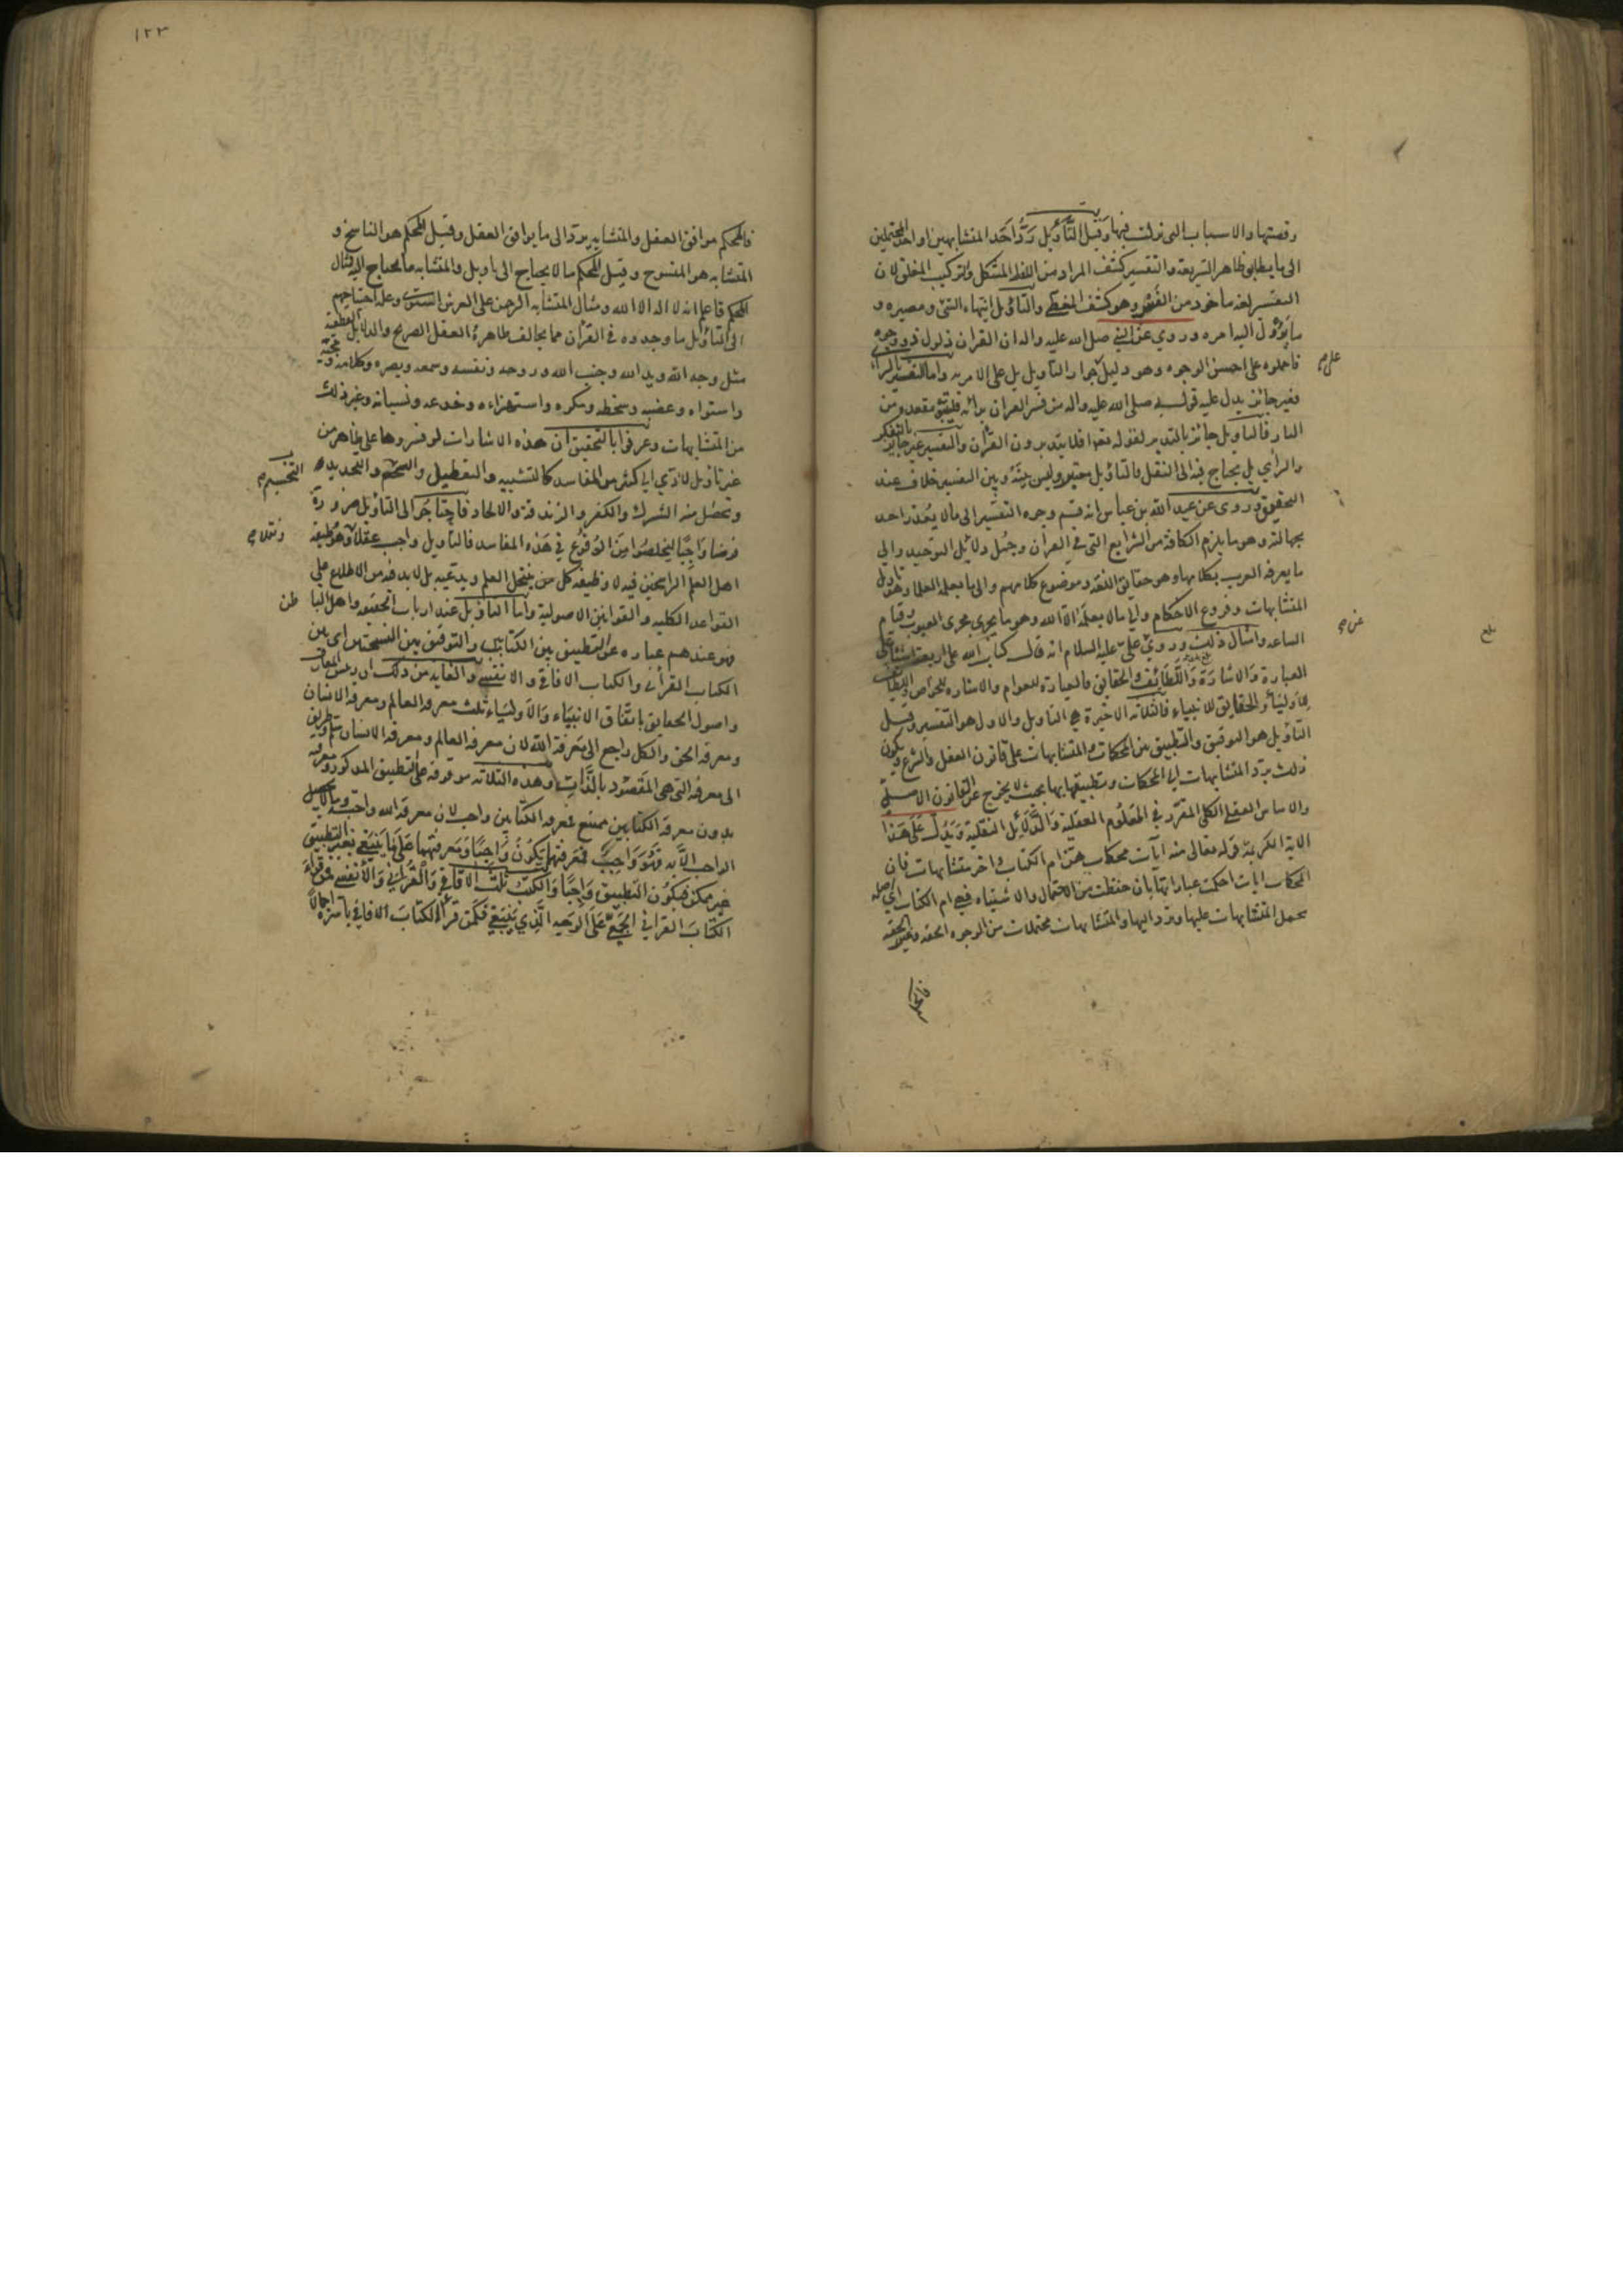 وقصتها والاسباب التى نزلت فيها وقيل التَّأويل رَدُّ اَحَد المتشابهين او احد المحتملين
الى ما يطابق ظاهر الشريعة والتفسير كشف المراد من اللفظ المشكل والتركيب المغلق لان
التفسير لغة ماخوذ من الفسر وهو كشف المغطى والتأويل انتهاء الشئ ومصيره و
ما يؤول اليه امره وروي عن النبي صلى الله عليه واله ان القران ذلول ذو وجوه
فاحملوه على احسن الوجوه وهو دليل جواز التاويل بل على الامر به واما التفسير بالراى
على
فغير جائز يدل عليه قوله صلى الله عليه واله من فسر القران برائه فليتبوء مقعده من
النار فالتاويل جائز بالتدبر لقوله تعالى افلا يتدبرون القرآن والتفسير غير جائز بالتفكر
والرأي بل يحتاج فيه الى النقل فالتاويل معتبر وليس بينه وبين التفسير خلاف عند
التحقيق وروى عن عبد الله بن عباس انه قسم وجوه التفسير الى ما لا يعذر احد
بجهالته وهو ما يلزم الكافة من الشرايع التى في القرآن وجُمل دلائل التوحيد والى
ما يعرفه العرب بكلامها وهو حقايق اللغة وموضوع كلامهم والى ما يعلمه العلما وهو تاويل
المتشابهات وفروع الاحكام والى ما لا يعلمه الا الله وهو ما يجري مجرى الغيوب وقيام
الساعه وامثال ذلك وروي عن علي عليه السلام انه قال كتاب الله على اربعة اشيا على
بلغ
العبارة والاشارة واللطائف والحقايق فالعبارة للعوام والاشاره للخواص واللطائف
للاولياء والحقايق للانبياء فالثلاثه الاخيرة هي التاويل والاول هو التفسير وقيل
التأويل هو التوفيق والتطبيق بين المحكمات والمتشابهات على قانون العقل والشرع ويكون
ذلك برد المتشابهات الى المحكمات وتطبيقها بها بحيث لا يخرج عن القانون الاصلى
والاساس العقلى الكلى المقرر في العلوم العقلية والدلائل النقلية ويدل على هذا
الاية الكريمة قوله تعالى منه آيات محكمات هن ام الكتاب واخر متشابهات فان
المحكمات ايات احكمت عباراتها بان حفظت من الاحتمال والاشتباه فهي ام الكتاب اي اصله
تحمل المتشابهات عليها وترد اليها والمتشابهات محتملات من الوجوه الحقه وغير الحقه
فالمحكم
١٢٣
فالمحكم موافق العقل والمتشابه يرد الى ما يوافق العقل وقيل المحكم هو الناسخ و
المتشابه هو المنسوخ وقيل المحكم ما لا يحتاج الى تاويل والمتشابه ما يحتاج اليه مثال
المحكم فاعلم انه لا اله الا الله ومثال المتشابه الرحمن على العرش استوى وعلة احتياجهم
الى التاويل ما وجدوه في القرآن مما يخالف ظاهره العقل الصريح والدلايل القطعية
مثل وجه الله ويد الله وجنب الله وروحه ونفسه وسمعه وبصره وكلامه ومجيئه
واستواه وغضبه وسخطه ومكره واستهزاءه وخدعه ونسيانه وغير ذلك
من المتشابهات وعرفوا بالتحقيق ان هذه الاشارات لو فسروها على ظاهر من
غير تاويل لادى الى كثير من المفاسد كالتشبيه والتعطيل والتجسم والتحديد
التجسيم
وتحصل منه الشرك والكفر والزندقة والالحاد فاحتاجوا الى التاويل ضرورة
فرضا واجبا ليخلصوا من الوقوع في هذه المفاسد فالتاويل واجب عقلا وهو وظيفة
ونقلا
اهل العلم الراسخين فيه لا وظيفة كل من ينتحل العلم ويدعيه بل لا بد فيه من الاطلاع على
القواعد الكلية والقوانين الاصولية واما التاويل عند ارباب التحقيق واهل الباطن
فهو عندهم عباره عن التطبيق بين الكتابين والتوفيق بين النسختين اى بين
الكتاب القرآنى والكتاب الافاقى والانفسى والفايده من ذلك ان رؤس المعارف
واصول الحقايق باتفاق الانبياء والاولياء ثلث معرفه العالم ومعرفه الانسان
ومعرفه الحق والكل راجع الى معرفة الله لان معرفه العالم ومعرفه الانسان سلم وطريق
الى معرفه التى هى المقصود بالذات وهذه الثلاثه موقوفه على التطبيق المذكور ومعرفه
بدون معرفه الكتابين ممتنع فمعرفه الكتابين واجب لان معرفه الله واجبه وما لا يحصل
الواجب الا به فهو واجب فمعرفتهما تكون واجبا ومعرفتهما على ما ينبغي بغير التطبيق
غير ممكن فيكون التطبيق واجبا والكتب ثلث الافاقى والقرآنى والانفسى فمن قراء
الكتاب القرانى الجمعى على الوجه الذي ينبغي فكمن قرأ الكتاب الافاقى باسره اجمالا